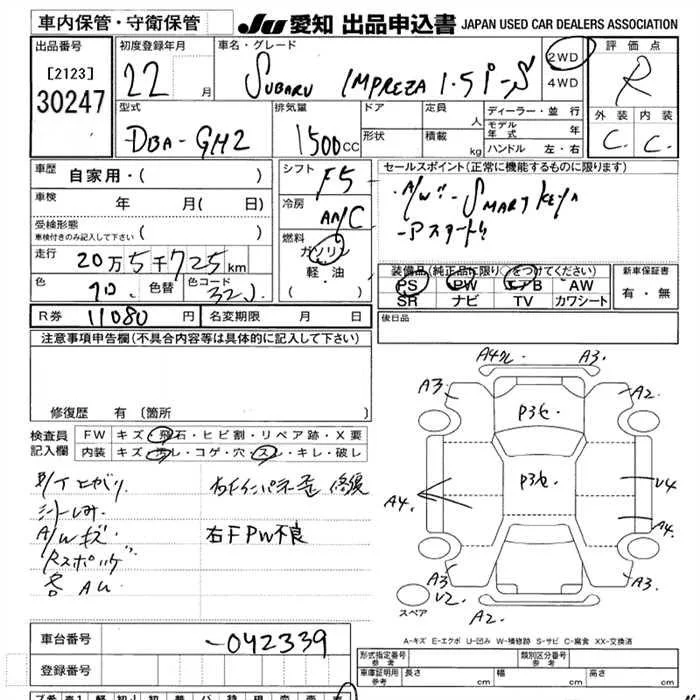 車内保管・守衛保管
JU 愛知 出品申込書 JAPAN USED CAR DEALERS ASSOCIATION
出品番号
[2123]
30247
初度登録年月
22 月
車名・グレード
SUBARU IMPREZA 1.5i-S
2WD
4WD
評価点
R
外装 内装
C. C.
型式
-DBA-GH2
排気量
1500CC
ドア
形状
定員
人
積載
kg
ディーラー・並行
モデル年式 年
ハンドル 左・右
車歴 自家用・( )
車検 年 月( 日)
受検形態
車検付きのみ記入して下さい ( )
走行 20万5千725km
色 色替 色コード 32J
R券 11080 円 名変期限 月 日
シフト
F5
冷房
AA/C
燃料
ガソリン
軽・油
・( )
セールスポイント(正常に機能するものに限ります)
・A/W -SMART KEY
-Pスタート
装備品(純正品に限り○をつけてください)
PS PW エアB AW
SR ナビ TV カワシート
新車保証書
有・無
後日品
注意事項申告欄(不具合内容等は具体的に記入して下さい)
修復歴 有 〔箇所
検査員記入欄
FW キズ・飛石・ヒビ割・リペア跡・X要
内装 キズ・汚レ・コゲ・穴・スレ・キレ・破レ
修復
A/Wキズ
右FPW不良
A4 A3.
A3. A2.
P3
P3
A4. U4
A4.
A3 U2 A3.
A2.
スペア
A-キズ E-エクボ U-凹み W-補修跡 S-サビ C-腐食 XX-交換済
車台番号 -042339
登録番号
形式指定番号 参考 類別区分番号 参考
車庫証明用 参考 長さ cm 幅 cm 高さ cm